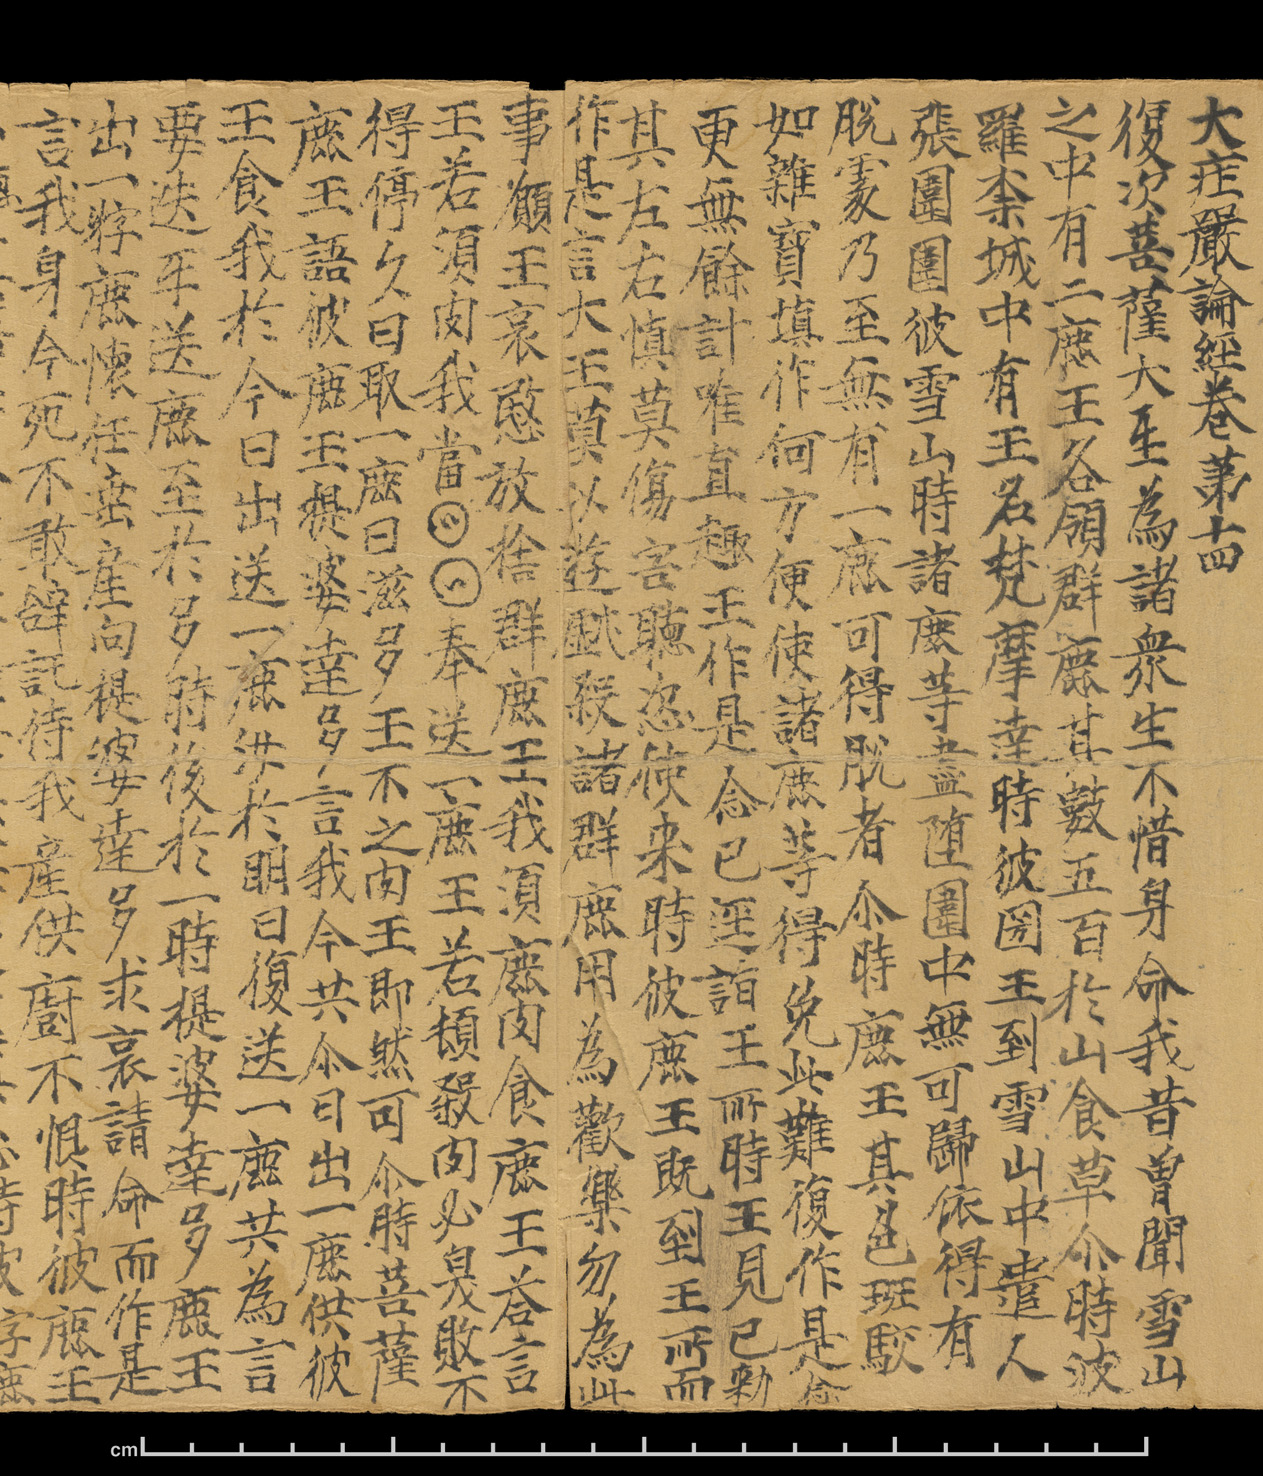 大庄嚴論經卷第十四
復次菩薩大士為諸衆生不惜身命我昔曾聞雪山
之中有二鹿王各領群鹿其數五百於山食草尒時波
羅柰城中有王名梵摩達時彼国王到雪山中遣人
張圍圍彼雪山時諸鹿等盡墮圍中無可歸依得有
脫處乃至無有一鹿可得脫者尒時鹿王其色班駮
如雜寶填作何方便使諸鹿等得免此難復作是念
更無餘計唯直趣王作是念已逕詣王所時王見已勅
其左右慎莫傷害聽恣使来時彼鹿王既到王所而
作是言大王莫以遊戯殺諸群鹿用為歡樂勿為此
事願王哀愍放捨群鹿王我須鹿肉食鹿王荅言
王若須肉我當奉送一鹿王若頓殺肉必臭敗不
得停久日取一鹿日滋多王不之肉王即然可尒時菩薩
鹿王語彼鹿王提婆達多言我今共尒日出一鹿供彼
王食我於今日出送一鹿汝於明日復送一鹿共為言
要迭互送鹿至於多時後於一時提婆達多鹿王
出一牸鹿懷任垂産向提婆達多求哀請命而作是
言我身今死不敢辝託待我産供廚不恨時彼鹿王